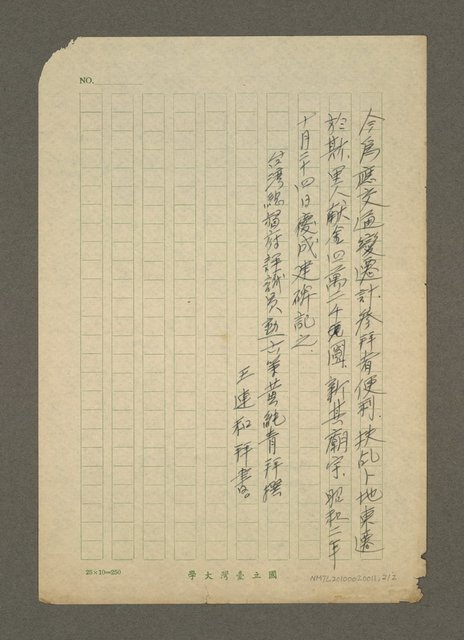 NO.
今為應交通變遷計，參拜者便利，扶乩卜地東遷
於斯，里人献金四萬二千圓，新其廟宇，昭和二年
十月三十四日慶成建碑記之。
台湾総督府評議員勳六等黃純青拜撰
王連和拜書。
25×10=250
國立臺灣大學
NMTL20100020011, 2/2